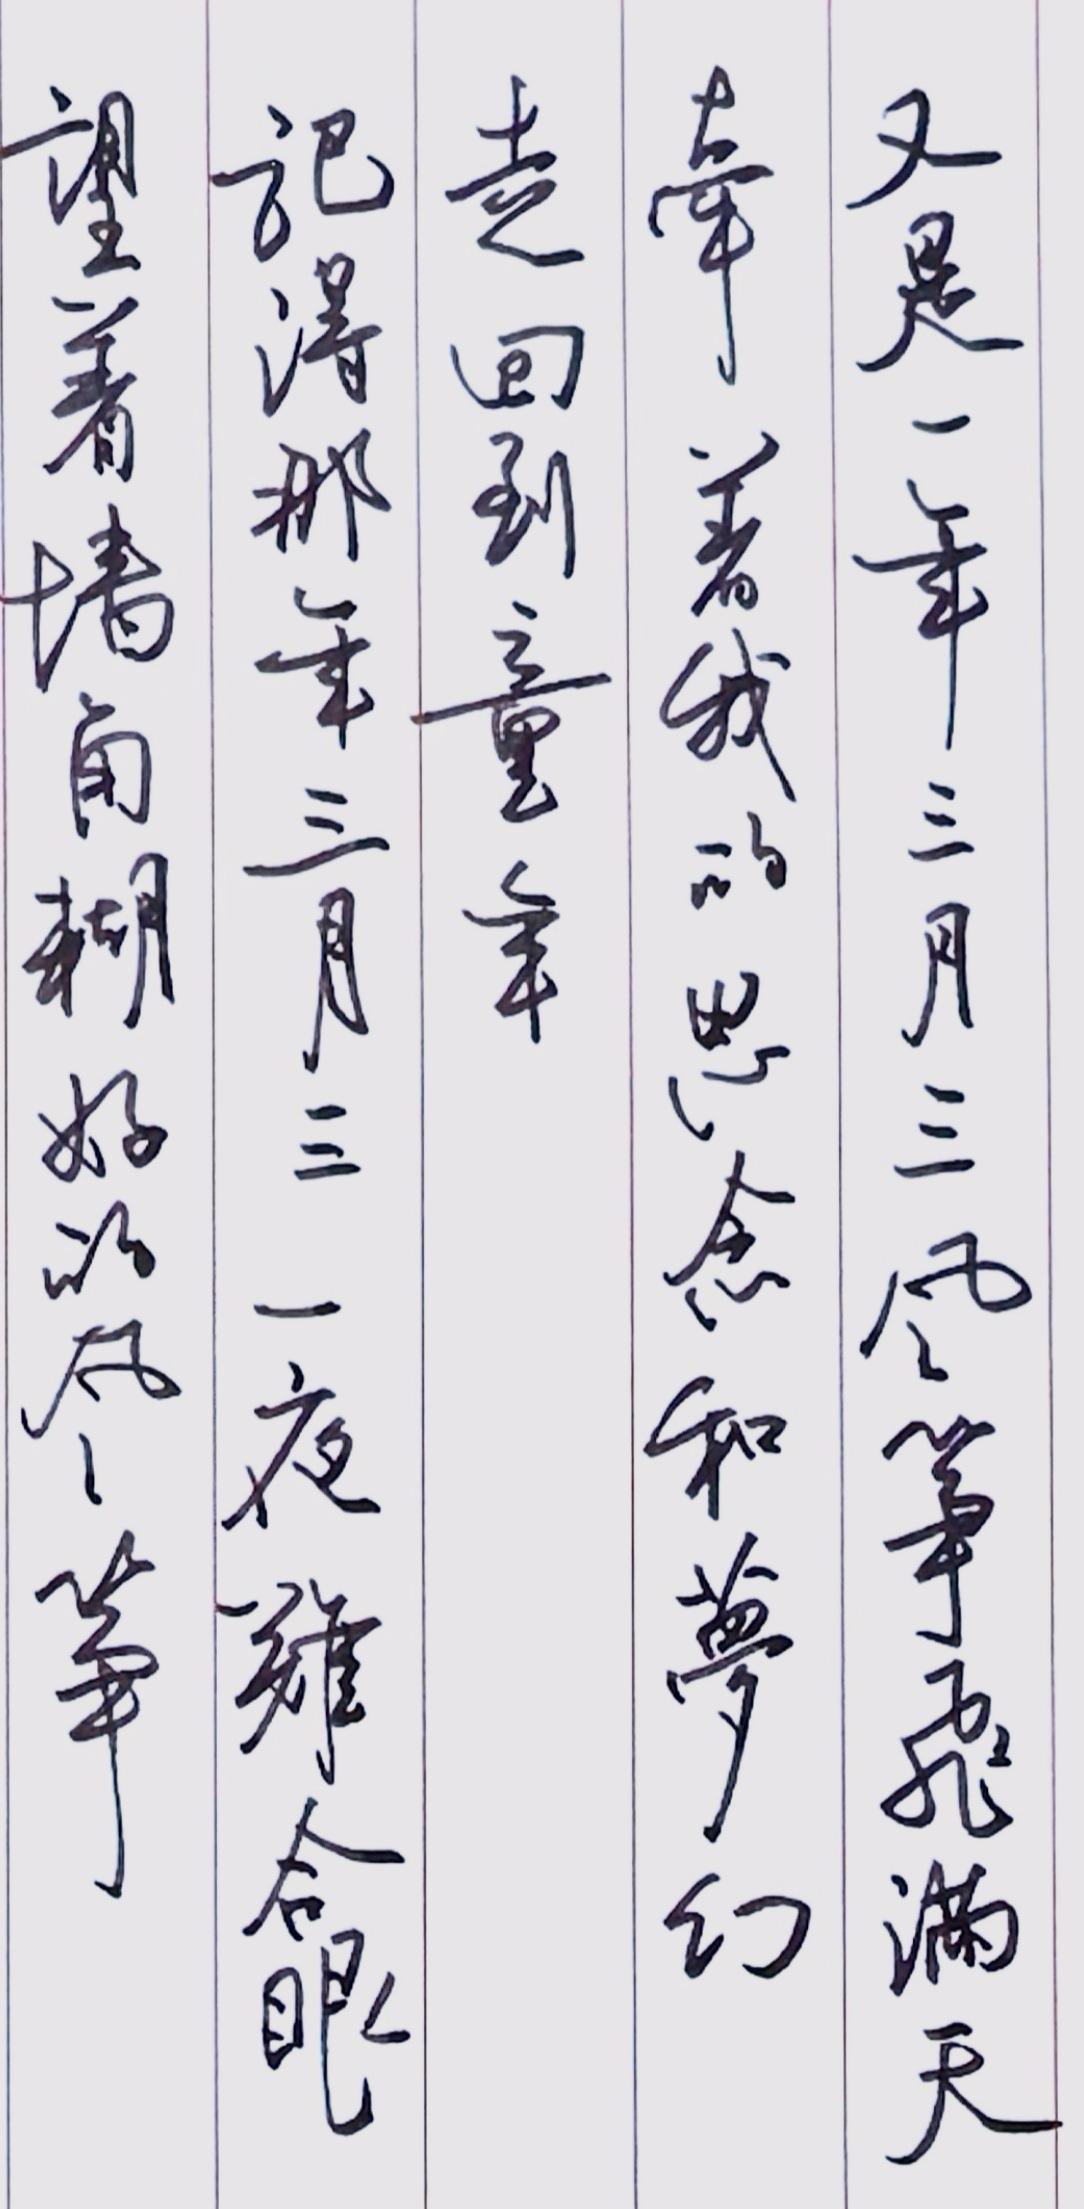 又是一年三月三风筝飞满天
牵着我的思念和夢幻
走回到童年
记得那年三月三一夜難合眼
望着墙角糊好的风筝